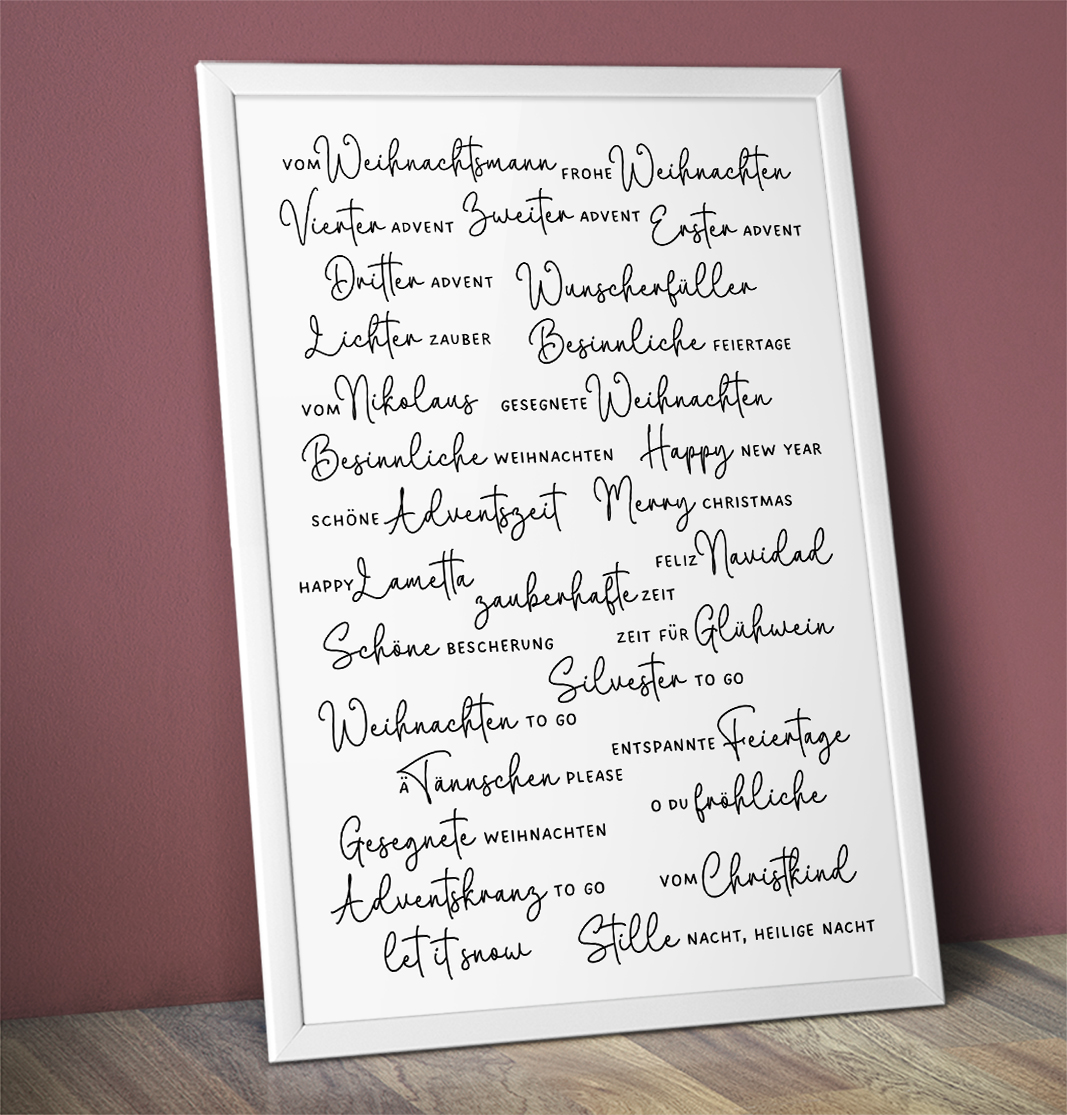 VOM Weihnachtsmann FROHE Weihnachten
Vierter ADVENT Zweiter ADVENT Erster ADVENT
Dritter ADVENT Wunscherfüller
Lichter ZAUBER Besinnliche FEIERTAGE
VOM Nikolaus GESEGNETE Weihnachten
Besinnliche WEIHNACHTEN Happy NEW YEAR
SCHÖNE Adventszeit Merry CHRISTMAS
HAPPY Lametta FELIZ Navidad
zauberhafte ZEIT
Schöne BESCHERUNG ZEIT FÜR Glühwein
Silvester TO GO
Weihnachten TO GO
ENTSPANNTE Feiertage
Ä Tännschen PLEASE
O DU fröhliche
Gesegnete WEIHNACHTEN
Adventskranz TO GO VOM Christkind
let it snow Stille NACHT, HEILIGE NACHT